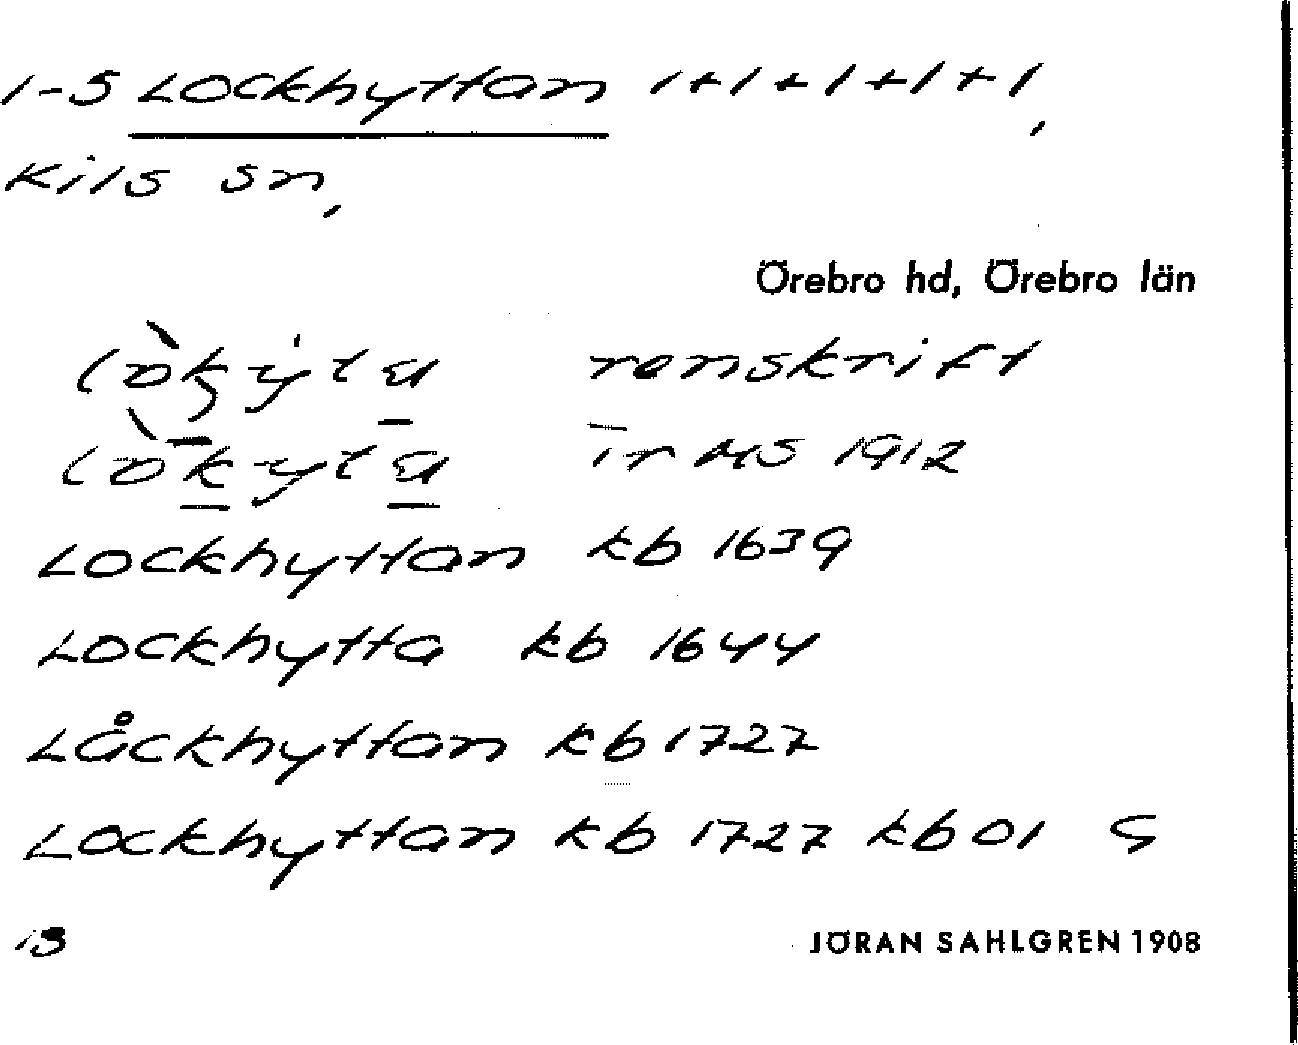 1-5 Lockhyttan 1+1+1+1+1,
Kils sn,
Örebro hd, Örebro län
renskrift
ir MS 1912
Lockhyttan kb 1639
Lockhytta kb 1644
Låckhyttan kb 1727
Lockhyttan kb 1727 kb 01 S
13 JÖRAN SAHLGREN 1908